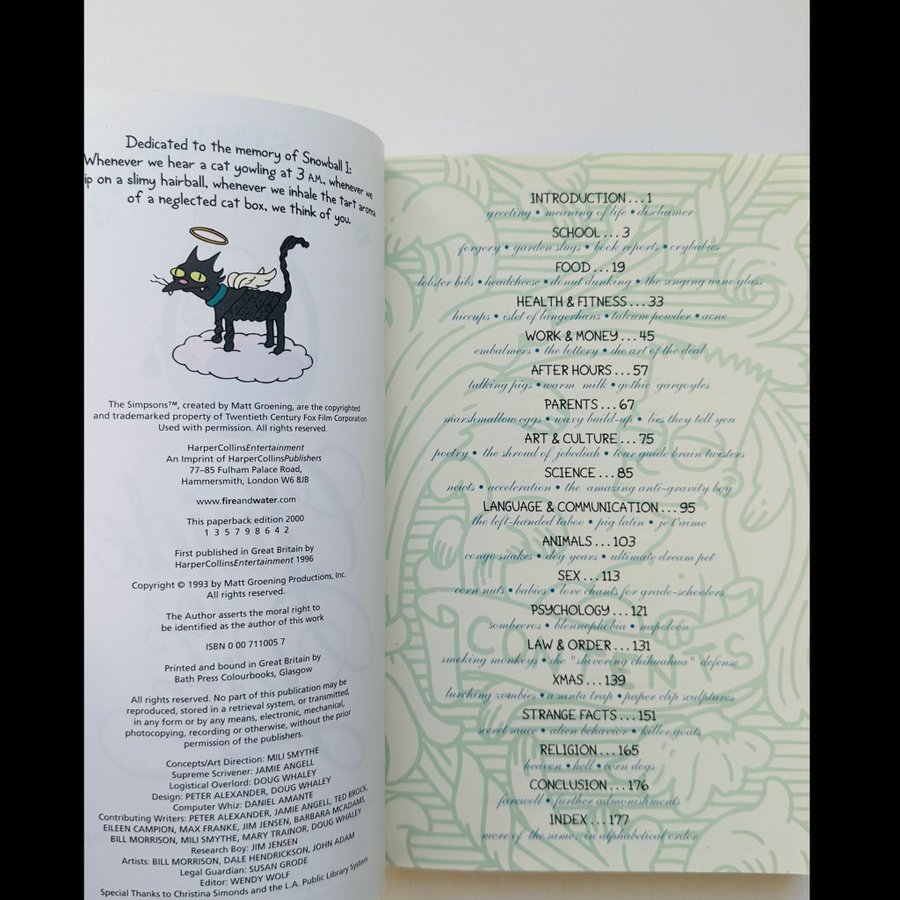 Dedicated to the memory of Snowball I:
Whenever we hear a cat yowling at 3 A.M., whenever we
ip on a slimy hairball, whenever we inhale the tart aroma
of a neglected cat box, we think of you.
The Simpsons™, created by Matt Groening, are the copyrighted
and trademarked property of Twentieth Century Fox Film Corporation
Used with permission. All rights reserved.
HarperCollinsEntertainment
An Imprint of HarperCollinsPublishers
77–85 Fulham Palace Road,
Hammersmith, London W6 8JB
www.fireandwater.com
This paperback edition 2000
1 3 5 7 9 8 6 4 2
First published in Great Britain by
HarperCollinsEntertainment 1996
Copyright © 1993 by Matt Groening Productions, Inc.
All rights reserved.
The Author asserts the moral right to
be identified as the author of this work
ISBN 0 00 711005 7
Printed and bound in Great Britain by
Bath Press Colourbooks, Glasgow
All rights reserved. No part of this publication may be
reproduced, stored in a retrieval system, or transmitted,
in any form or by any means, electronic, mechanical,
photocopying, recording or otherwise, without the prior
permission of the publishers.
Concepts/Art Direction: MILI SMYTHE
Supreme Scrivener: JAMIE ANGELL
Logistical Overlord: DOUG WHALEY
Design: PETER ALEXANDER, DOUG WHALEY
Computer Whiz: DANIEL AMANTE
Contributing Writers: PETER ALEXANDER, JAMIE ANGELL, TED BROCK,
EILEEN CAMPION, MAX FRANKE, JIM JENSEN, BARBARA MCADAMS,
BILL MORRISON, MILI SMYTHE, MARY TRAINOR, DOUG WHALEY
Research Boy: JIM JENSEN
Artists: BILL MORRISON, DALE HENDRICKSON, JOHN ADAM
Legal Guardian: SUSAN GRODE
Editor: WENDY WOLF
Special Thanks to Christina Simonds and the L.A. Public Library System
INTRODUCTION...1
greeting • meaning of life • disclaimer
SCHOOL...3
forgery • garden slugs • book reports • crybabies
FOOD...19
lobster bibs • headcheese • donut dunking • the singing wine glass
HEALTH & FITNESS...33
hiccups • islet of langerhans • talcum powder • acne
WORK & MONEY...45
embalmers • the lottery • the art of the deal
AFTER HOURS...57
talking pigs • warm milk • gothic gargoyles
PARENTS...67
marshmallow eggs • waxy build-up • lies they tell you
ART & CULTURE...75
poetry • the shroud of jebediah • tour guide brain twisters
SCIENCE...85
newts • acceleration • the amazing anti-gravity boy
LANGUAGE & COMMUNICATION...95
the left-handed taboo • pig latin • je t'aime
ANIMALS...103
congo snakes • dog years • ultimate dream pet
SEX...113
corn nuts • babies • love chants for grade-schoolers
PSYCHOLOGY...121
sombreros • blennophobia • napoleon
LAW & ORDER...131
smoking monkeys • the "shivering chihuahua" defense
XMAS...139
lurching zombies • a santa trap • paper clip sculptures
STRANGE FACTS...151
secret sauce • alien behavior • killer goats
RELIGION...165
heaven • hell • corn dogs
CONCLUSION...176
farewell • further admonishments
INDEX...177
more of the same, in alphabetical order
CONTENTS